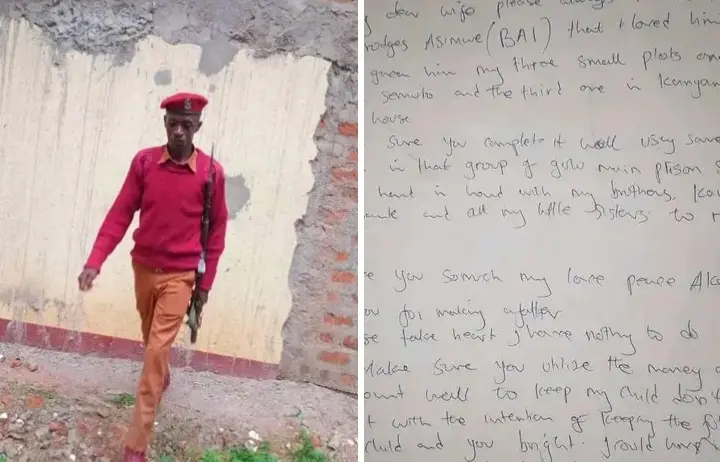 dear wife please always
Asimwe (BAI) that I loved him
given him my three small plots and
semuto and the third one in
house
Sure you complete it well using
in that group of gulu main prison
hand in hand with my brothers,
and all my little sisters to
you somuch my love peace
for making a father
take heart I have nothing to do
Make sure you utilise the money
well to keep my child don't
with the intention of keeping the
child and you bright. I would have